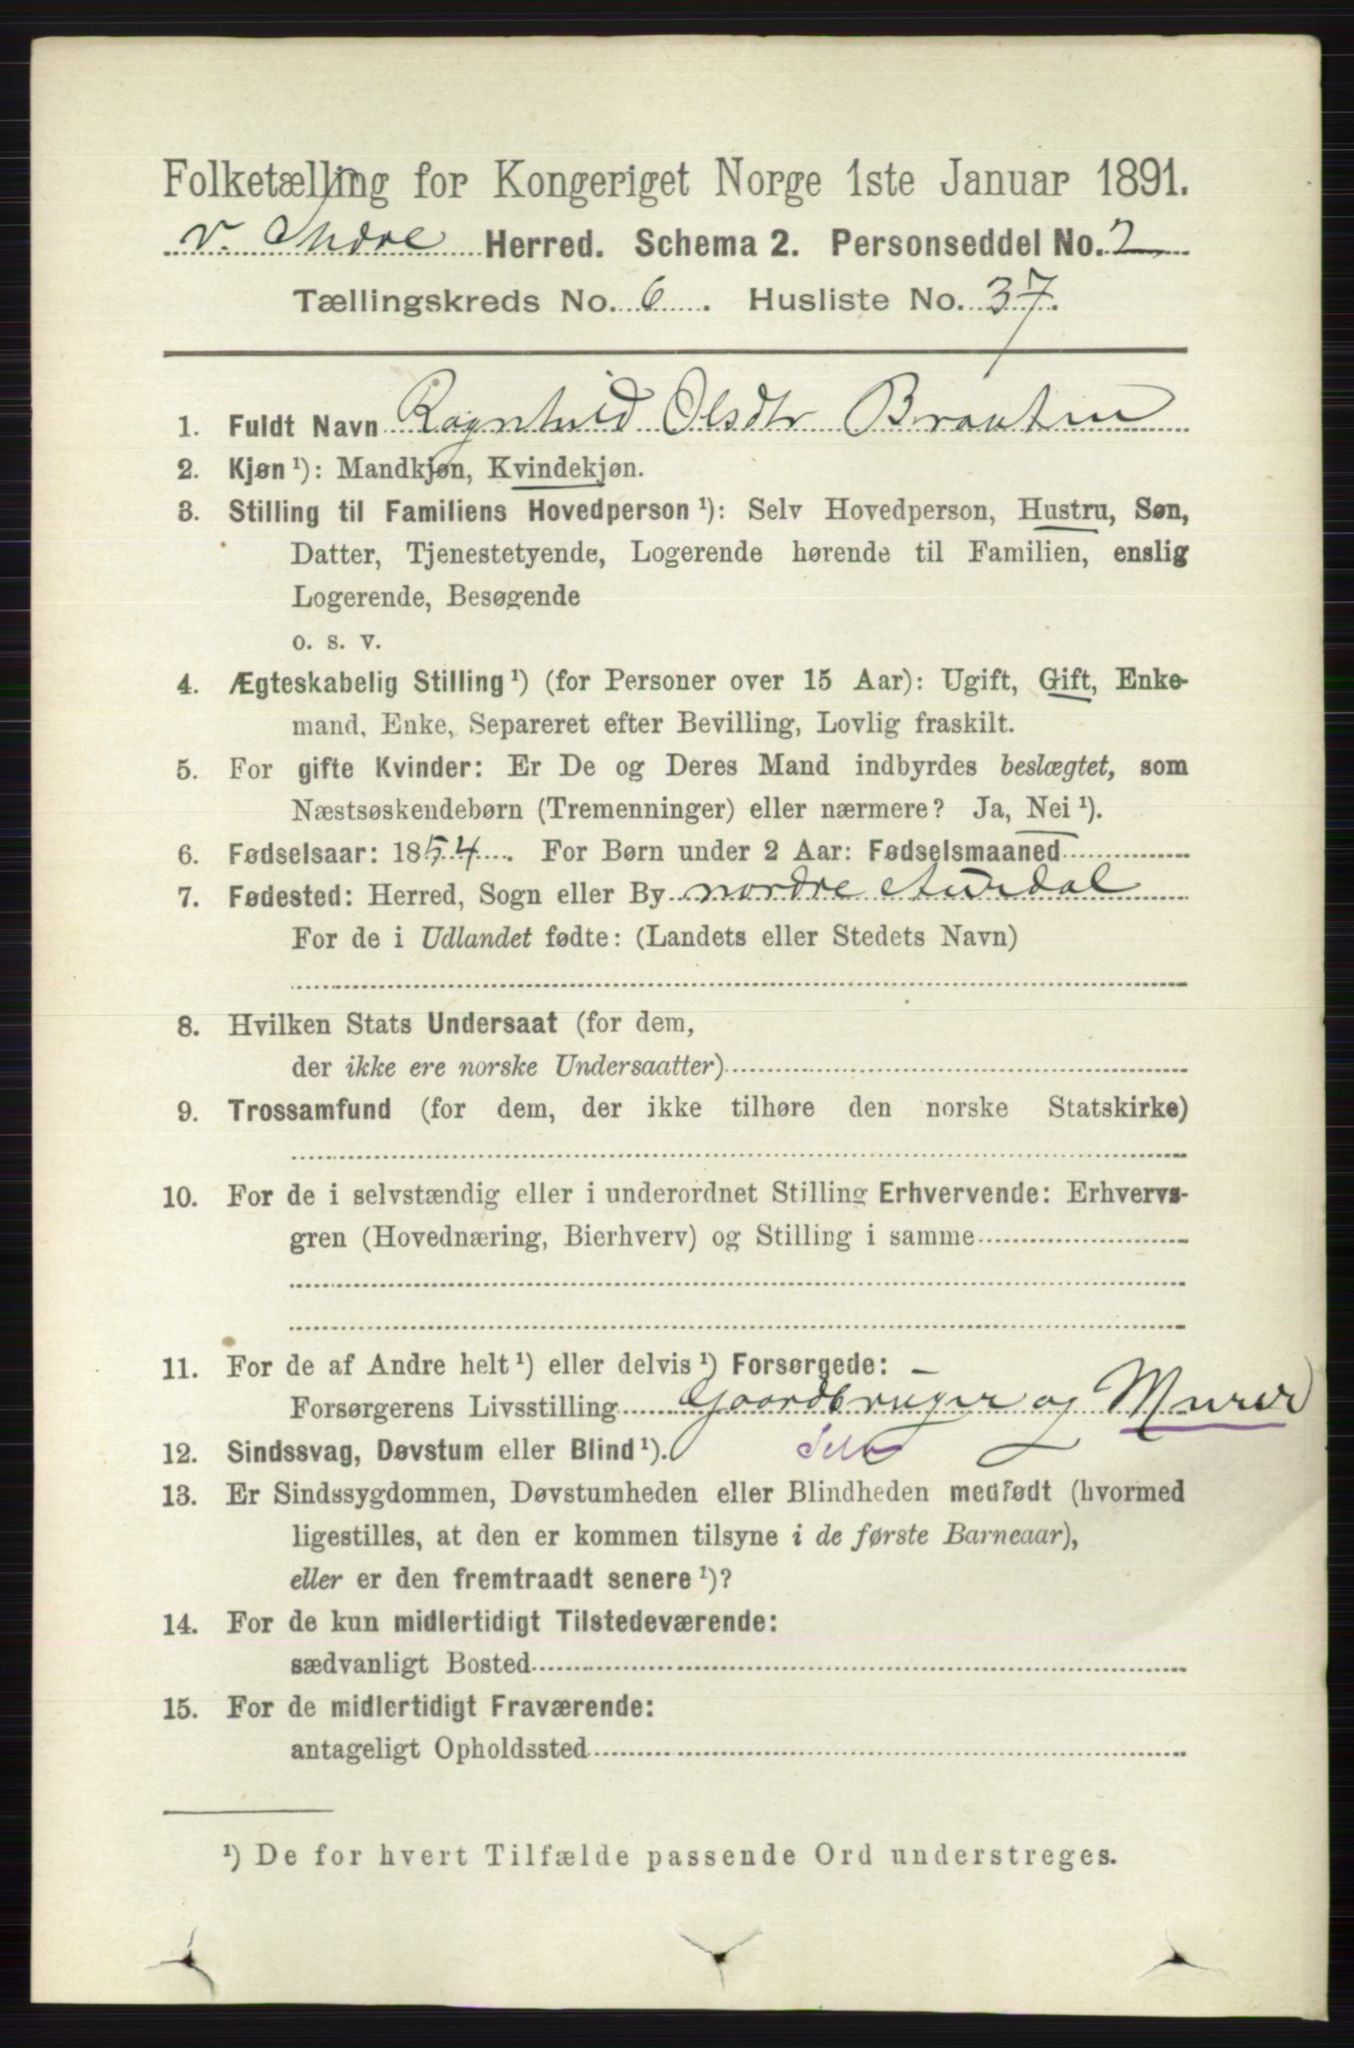 Folketælling for Kongeriget Norge 1ste Januar 1891.
V. Slidre Herred. Schema 2. Personseddel No. 2
Tællingskreds No. 6. Husliste No. 37.
1. Fuldt Navn Ragnhild Olsdtr Braaten
2. Kjøn ¹): Mandkjøn, Kvindekjøn.
3. Stilling til Familiens Hovedperson ¹): Selv Hovedperson, Hustru, Søn,
Datter, Tjenestetyende, Logerende hørende til Familien, enslig
Logerende, Besøgende
o. s. v.
4. Ægteskabelig Stilling ¹) (for Personer over 15 Aar): Ugift, Gift, Enke-
mand, Enke, Separeret efter Bevilling, Lovlig fraskilt.
5. For gifte Kvinder: Er De og Deres Mand indbyrdes beslægtet, som
Næstsøskendebørn (Tremenninger) eller nærmere? Ja, Nei ¹).
6. Fødselsaar: 1854. For Børn under 2 Aar: Fødselsmaaned
7. Fødested: Herred, Sogn eller By nordre Aurdal
For de i Udlandet fødte: (Landets eller Stedets Navn)
8. Hvilken Stats Undersaat (for dem,
der ikke ere norske Undersaatter)
9. Trossamfund (for dem, der ikke tilhøre den norske Statskirke)
10. For de i selvstændig eller i underordnet Stilling Erhvervende: Erhvervs-
gren (Hovednæring, Bierhverv) og Stilling i samme
11. For de af Andre helt ¹) eller delvis ¹) Forsørgede:
Forsørgerens Livsstilling Gaardbruger og Murer
12. Sindssvag, Døvstum eller Blind ¹). Selv
13. Er Sindssygdommen, Døvstumheden eller Blindheden medfødt (hvormed
ligestilles, at den er kommen tilsyne i de første Barneaar),
eller er den fremtraadt senere ¹)?
14. For de kun midlertidigt Tilstedeværende:
sædvanligt Bosted
15. For de midlertidigt Fraværende:
antageligt Opholdssted
¹) De for hvert Tilfælde passende Ord understreges.